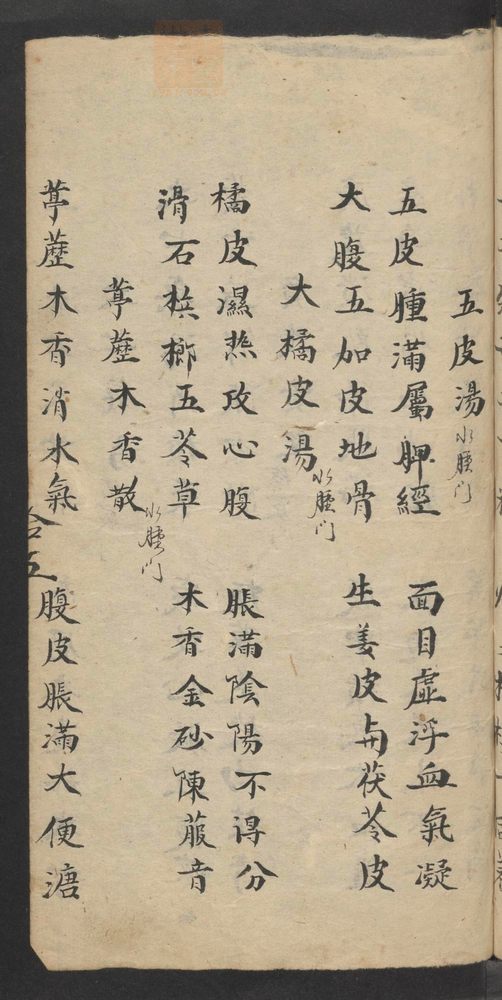 五皮湯 水腫门
五皮腫滿屬脾經 面目虛浮血氣凝
大腹五加皮地骨 生姜皮与茯苓皮
大橘皮湯 水腫门
橘皮濕热攻心腹 脹滿陰陽不得分
滑石梹榔五苓草 木香金砂陳菔音
葶藶木香散 水腫门
葶藶木香消水氣 腹皮脹滿大便溏
合五